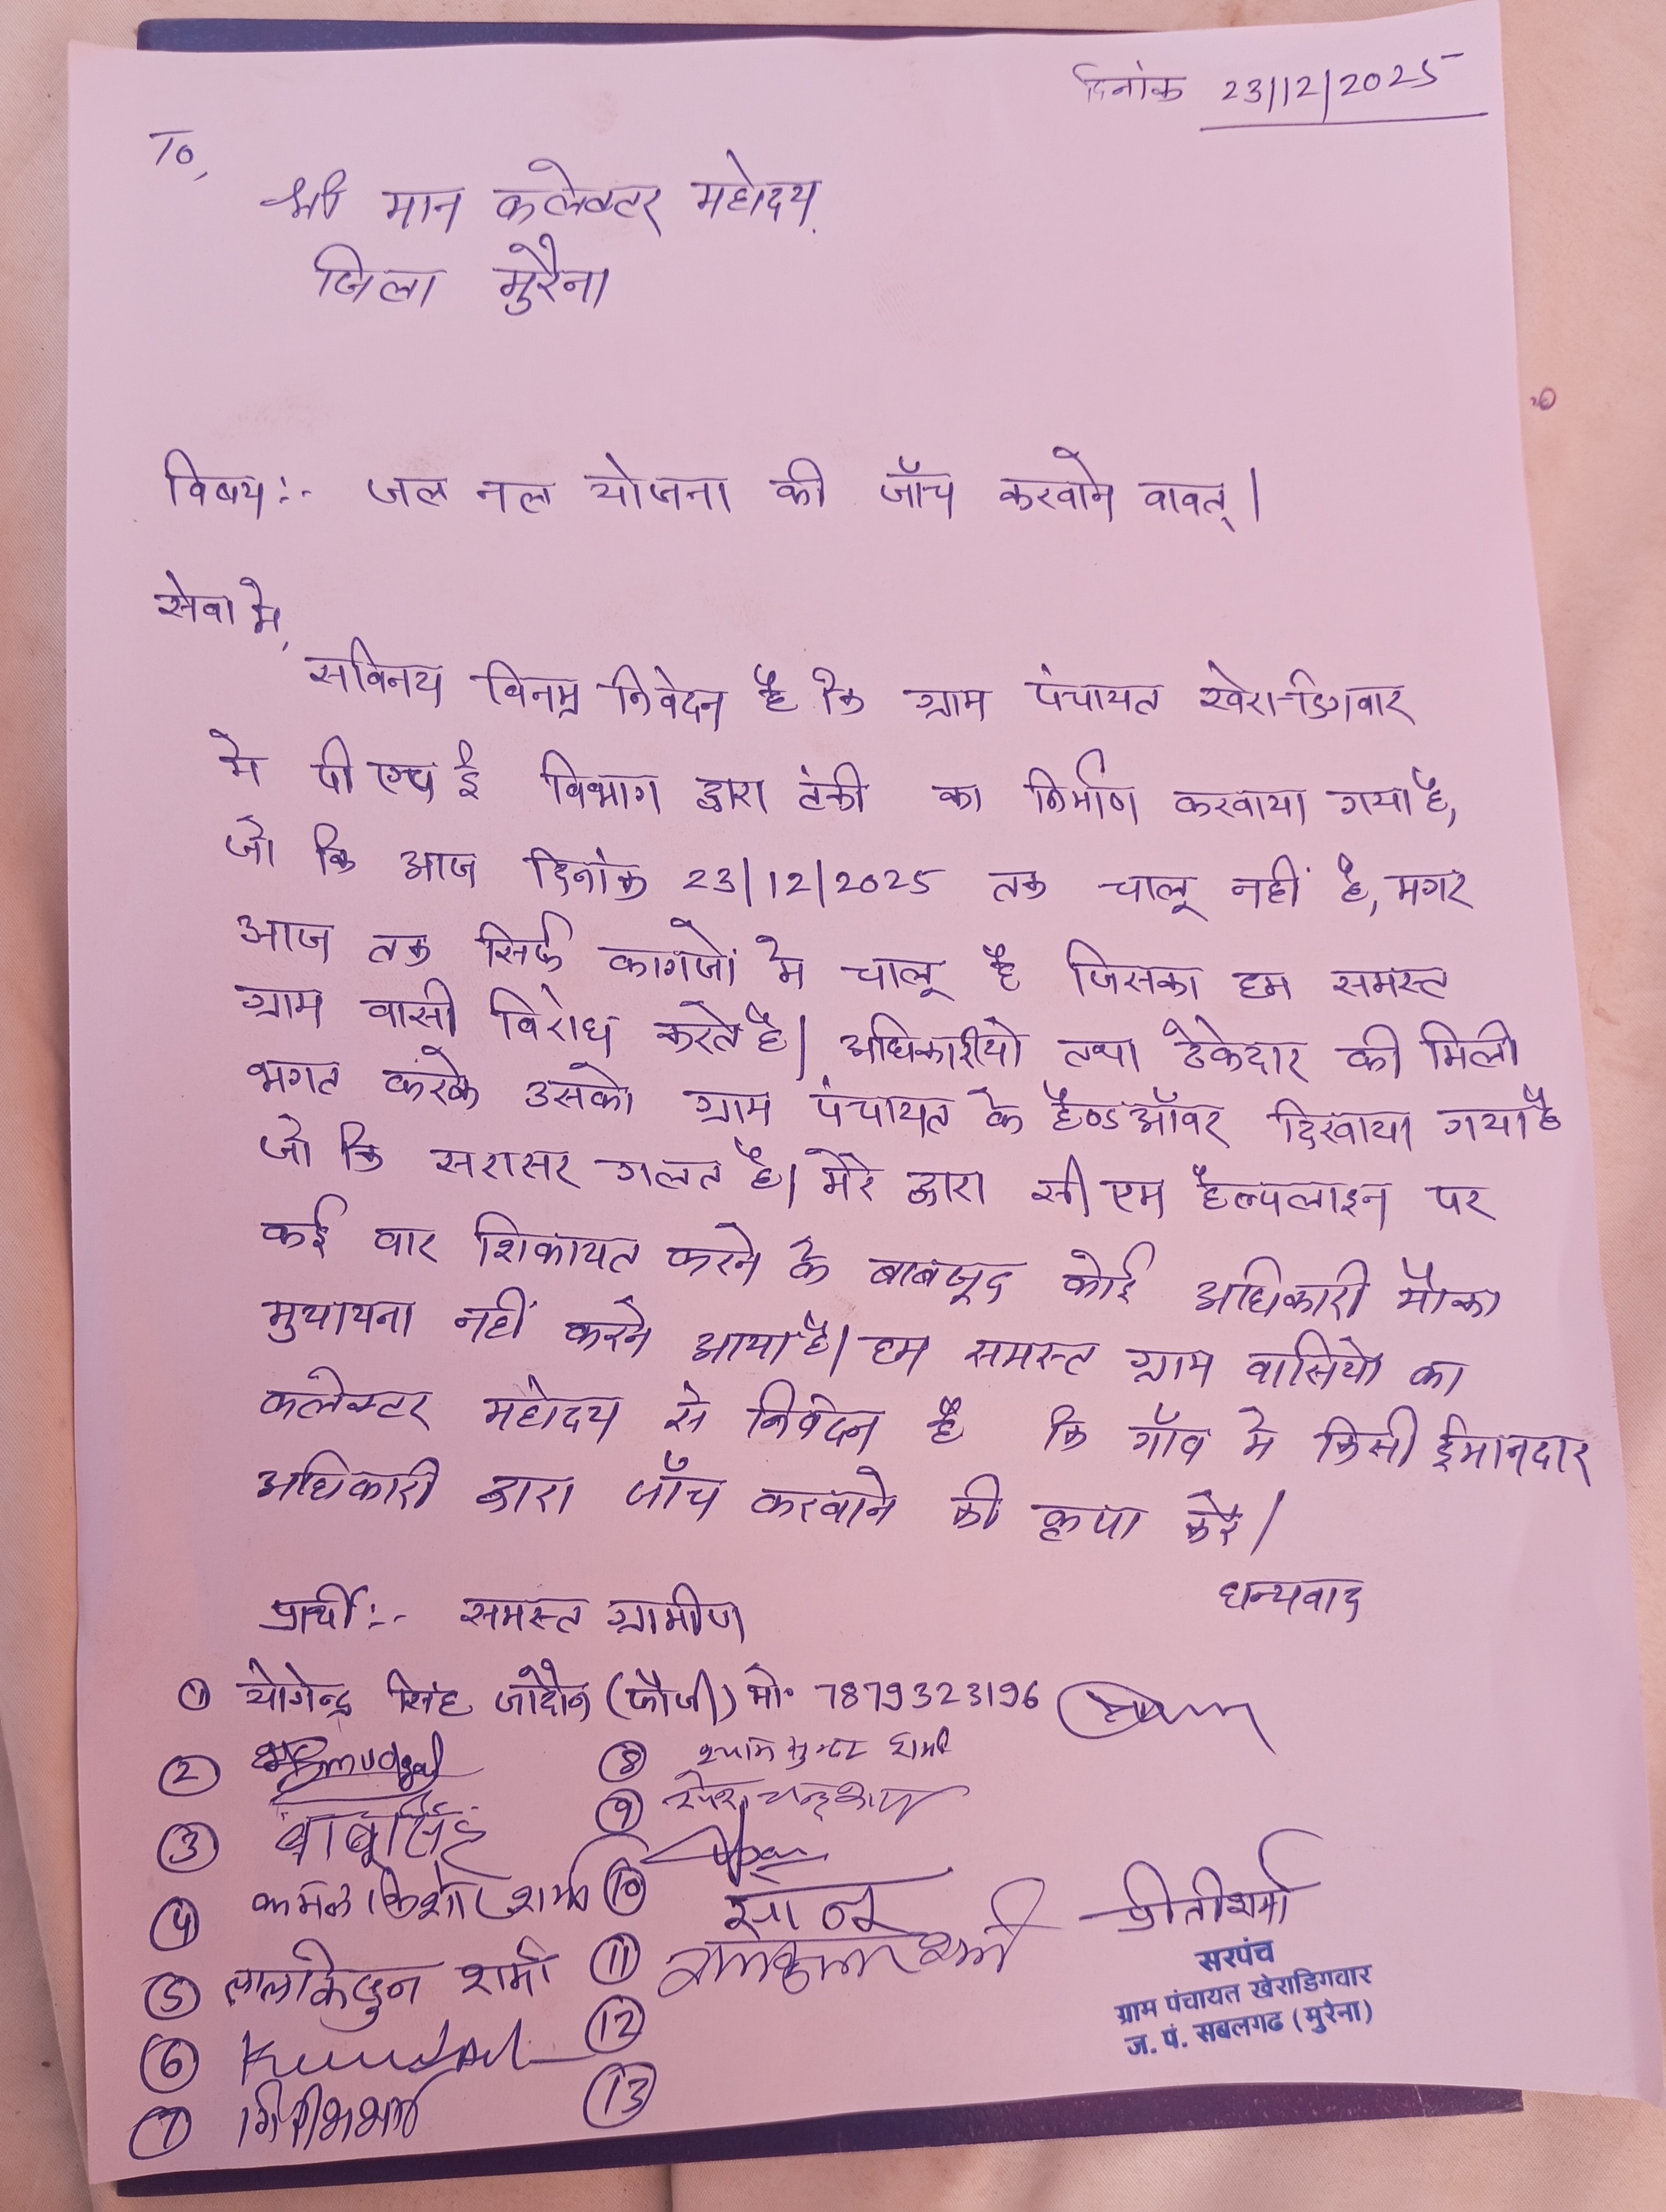 दिनांक 23/12/2025
To,
श्री मान कलेक्टर महोदय
जिला मुरैना
विषय:- जल नल योजना की जॉच करवाने वावत्।
सेवा मे,
सविनय विनम्र निवेदन है कि ग्राम पंचायत खेरा डिगवार
मे पी एच ई विभाग द्वारा टंकी का निर्माण करवाया गया है,
जो कि आज दिनांक 23/12/2025 तक चालू नहीं है, मगर
आज तक सिर्फ कागजों मे चालू है जिसका हम समस्त
ग्राम वासी विरोध करते है। अधिकारीयो तथा ठेकेदार की मिली
भगत करके उसको ग्राम पंचायत के हैण्डऑवर दिखाया गया है
जो कि सरासर गलत है। मेरे द्वारा सी एम हैल्पलाइन पर
कई वार शिकायत करने के बाबजूद कोई अधिकारी मौका
मुयायना नहीं करने आया है। हम समस्त ग्राम वासियो का
कलेक्टर महोदय से निवेदन है कि गॉव मे किसी ईमानदार
अधिकारी द्वारा जॉच करवाने की कृपा करे।
धन्यवाद
प्रार्थी:- समस्त ग्रामीण
① योगेन्द्र सिंह जादौन (फौजी) मो० 7879323196
②
③ बाबूसिंह
④ कमल किशोर शर्मा
⑤ लालकिशुन शर्मा
⑥
⑦
⑧ श्याम सुन्दर शर्मा
⑨
⑩
⑪ शर्मा
⑫
⑬
प्रीती शर्मा
सरपंच
ग्राम पंचायत खेराडिगवार
ज. पं. सबलगढ (मुरैना)